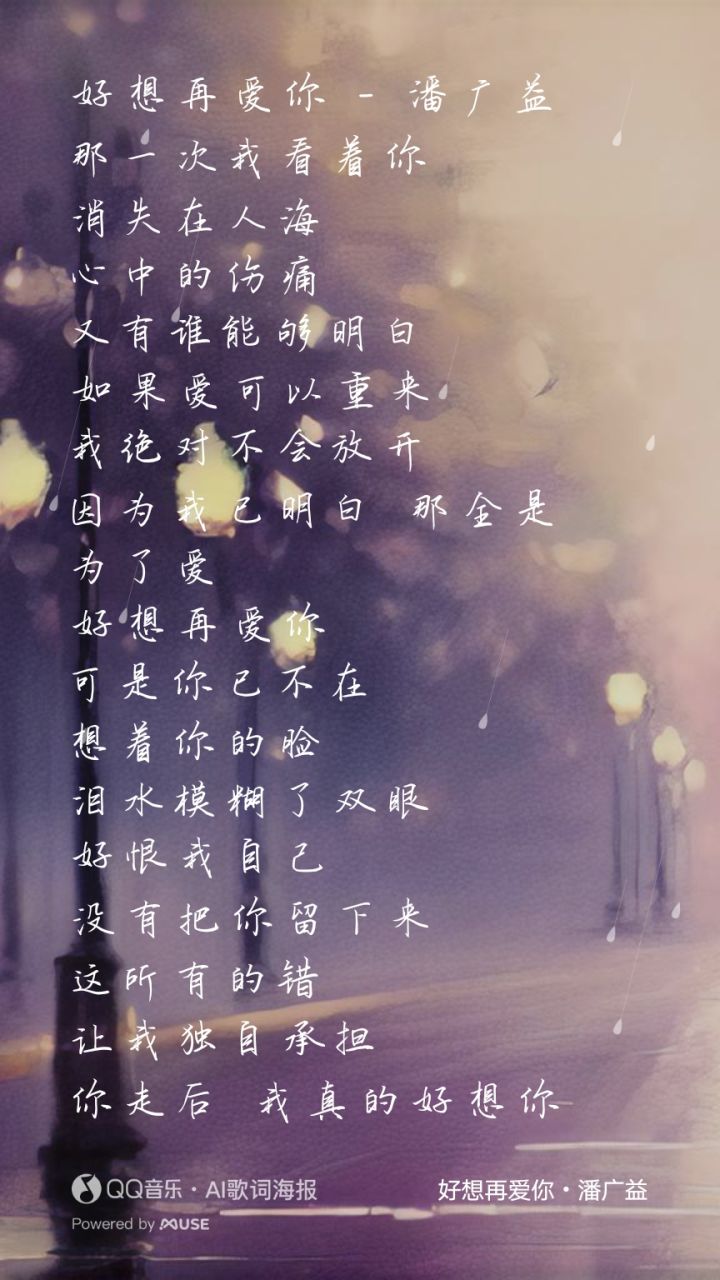 好想再爱你 - 潘广益
那一次我看着你
消失在人海
心中的伤痛
又有谁能够明白
如果爱可以重来
我绝对不会放开
因为我已明白 那全是
为了爱
好想再爱你
可是你已不在
想着你的脸
泪水模糊了双眼
好恨我自己
没有把你留下来
这所有的错
让我独自承担
你走后 我真的好想你
QQ音乐·AI歌词海报
好想再爱你·潘广益
Powered by MUSE